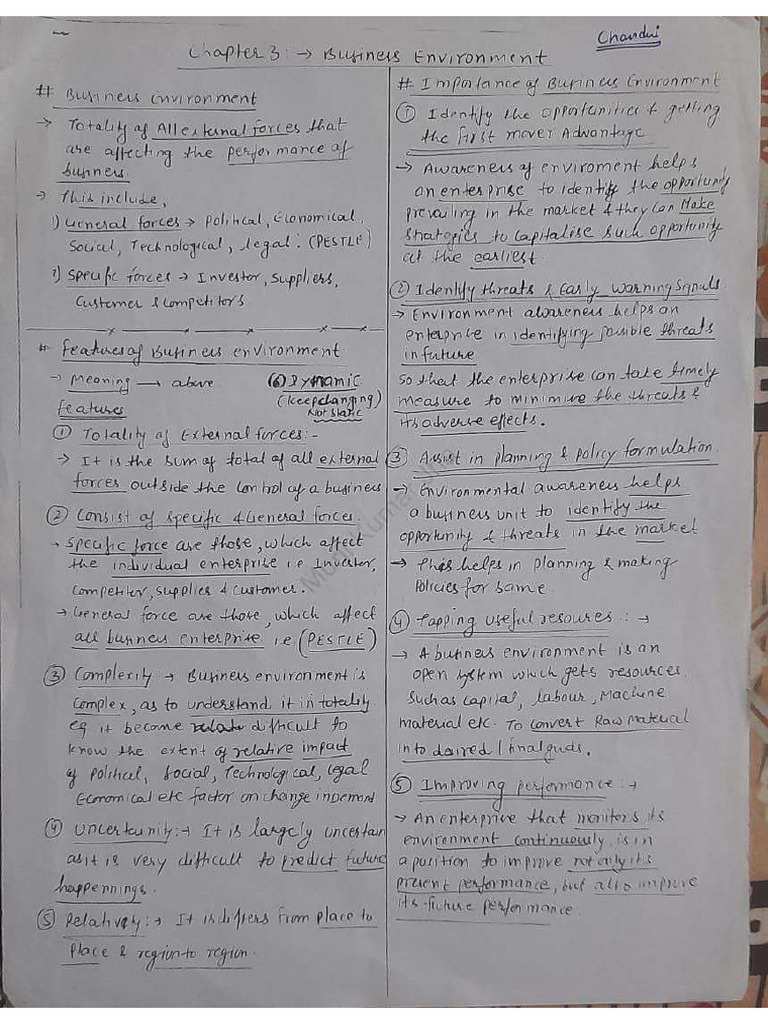 Chandni
Chapter 3: → Business Environment
# Business Environment
→ Totality of All external forces that
are affecting the performance of
business.
→ This include,
1) General forces → Political, Economical,
Social, Technological, legal: (PESTLE)
2) Specific forces → Investor, Suppliers,
Customer & Competitors
# features of Business environment
→ Meaning → above
features
(6) Dynamic
(keep changing)
Not static
① Totality of External forces:-
→ It is the sum of total of all external
forces outside the control of a business
② Consist of specific & General forces
→ Specific force are those, which affect
the individual enterprise i.e Investor,
Competitor, supplies & customer.
→ General force are those, which affect
all business enterprise i.e (PESTLE)
③ Complexity :→ Business environment is
complex, as to understand it in totality
eg it become difficult to
know the extent of relative impact
of Political, Social, Technological, legal
Economical etc factor on change in Demand
④ Uncertainity:→ It is largely uncertain
as it is very difficult to predict future
happennings.
⑤ Relativety:→ It is differs from place to
place & region to region.
# Importance of Business Environment
① Identify the opportunities & getting
the first mover Advantage
→ Awareness of enviroment helps
an enterprise to identify the opportunity
prevailing in the market & they can Make
strategies to capitalise such opportunity
at the earliest
② Identify threats & Early warning signals.
→ Environment awareness helps an
enterprise in identifying possible threats
in future
so that the enterprise can take timely
measure to minimise the threats &
its adverse effects.
③ Assist in planning & policy formulation.
→ Environmental awareness helps
a business unit to identify the
opportunity & threats in the market
→ This helps in planning & making
Policies for same
④ Tapping useful resoures :→
→ A business environment is an
open system which gets resources
Such as Capital, labour, Machine
material etc. To convert Raw Material
into daired / final guds.
⑤ Improving performance :→
→ An enterprise that monitors its
environment continuously, is in
a position to improve not only its
present performance, but also improve
its future performance.